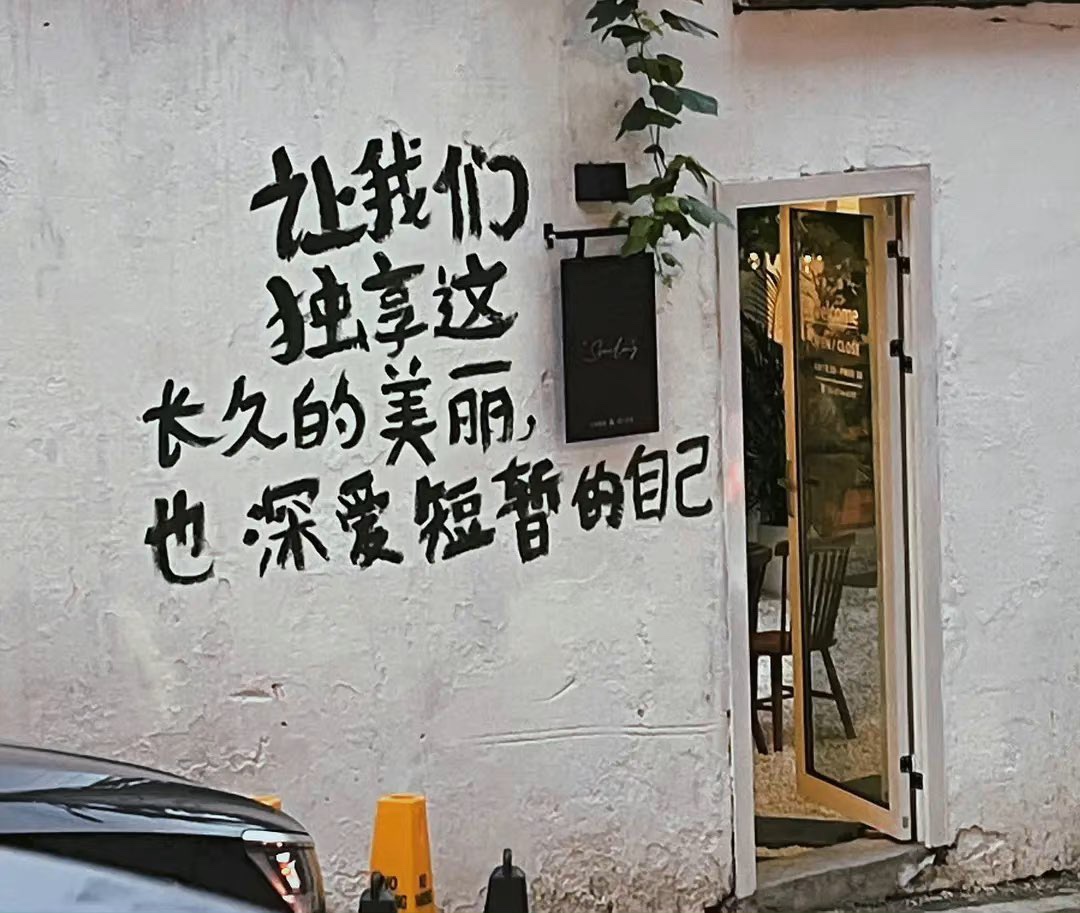 让我们
独享这
长久的美丽，
也深爱短暂的自己
Welcome
OPEN / CLOSE
NO
NO